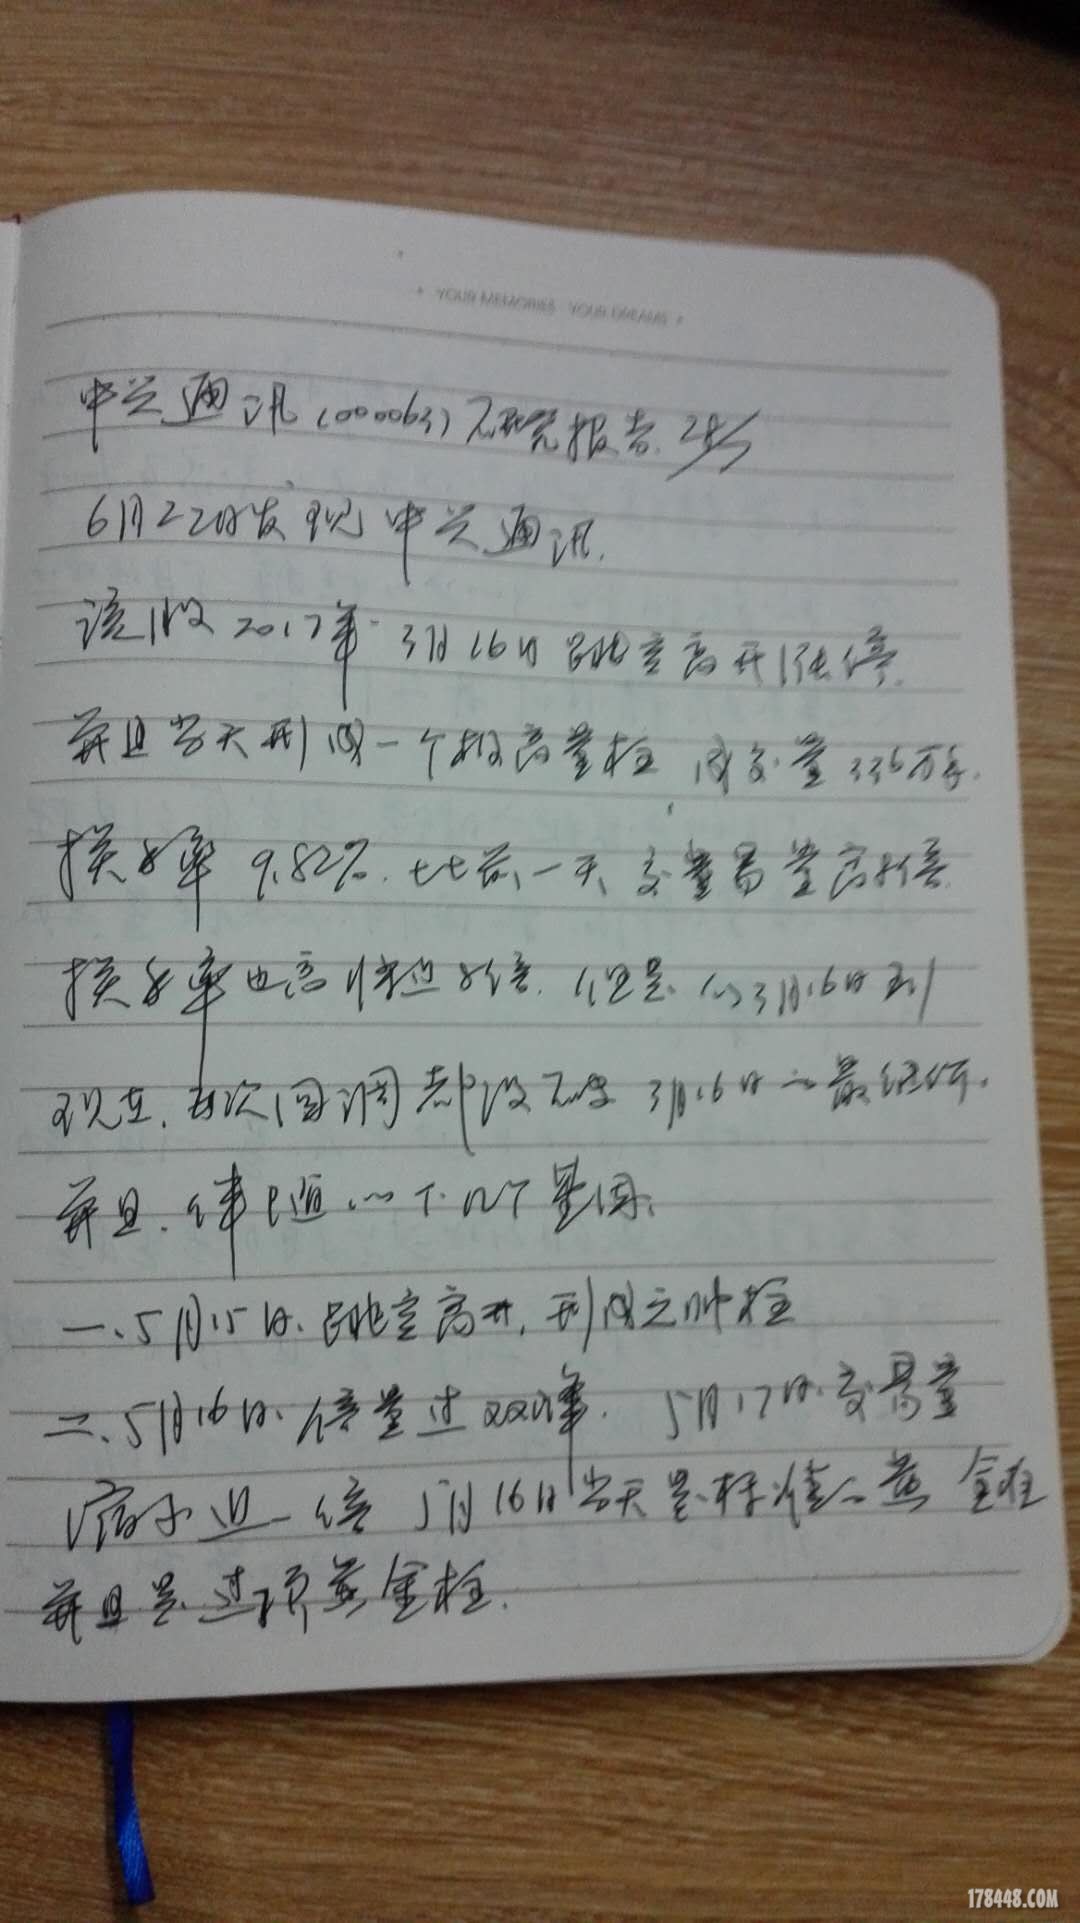 YOUR MEMORIES YOUR DREAMS
中兴通讯(000063)研究报告.
6月22日发现中兴通讯.
该股2017年3月16日跳空高开涨停.
并且当天形成一个极高量柱 成交量336万手.
换手率9.82%.比前一天交易量高好倍
换手率也高将近好倍.但是从3月16日到
现在,每次回调都没有破3月16日的最低价.
并且.伴随以下几个量因:
一、5月15日.跳空高开,形成元帅柱
二、5月16日.倍量过双峰. 5月17日.交易量
缩小近一倍 5月16日当天是标准的黄金柱
并且是过顶黄金柱.
178448.COM